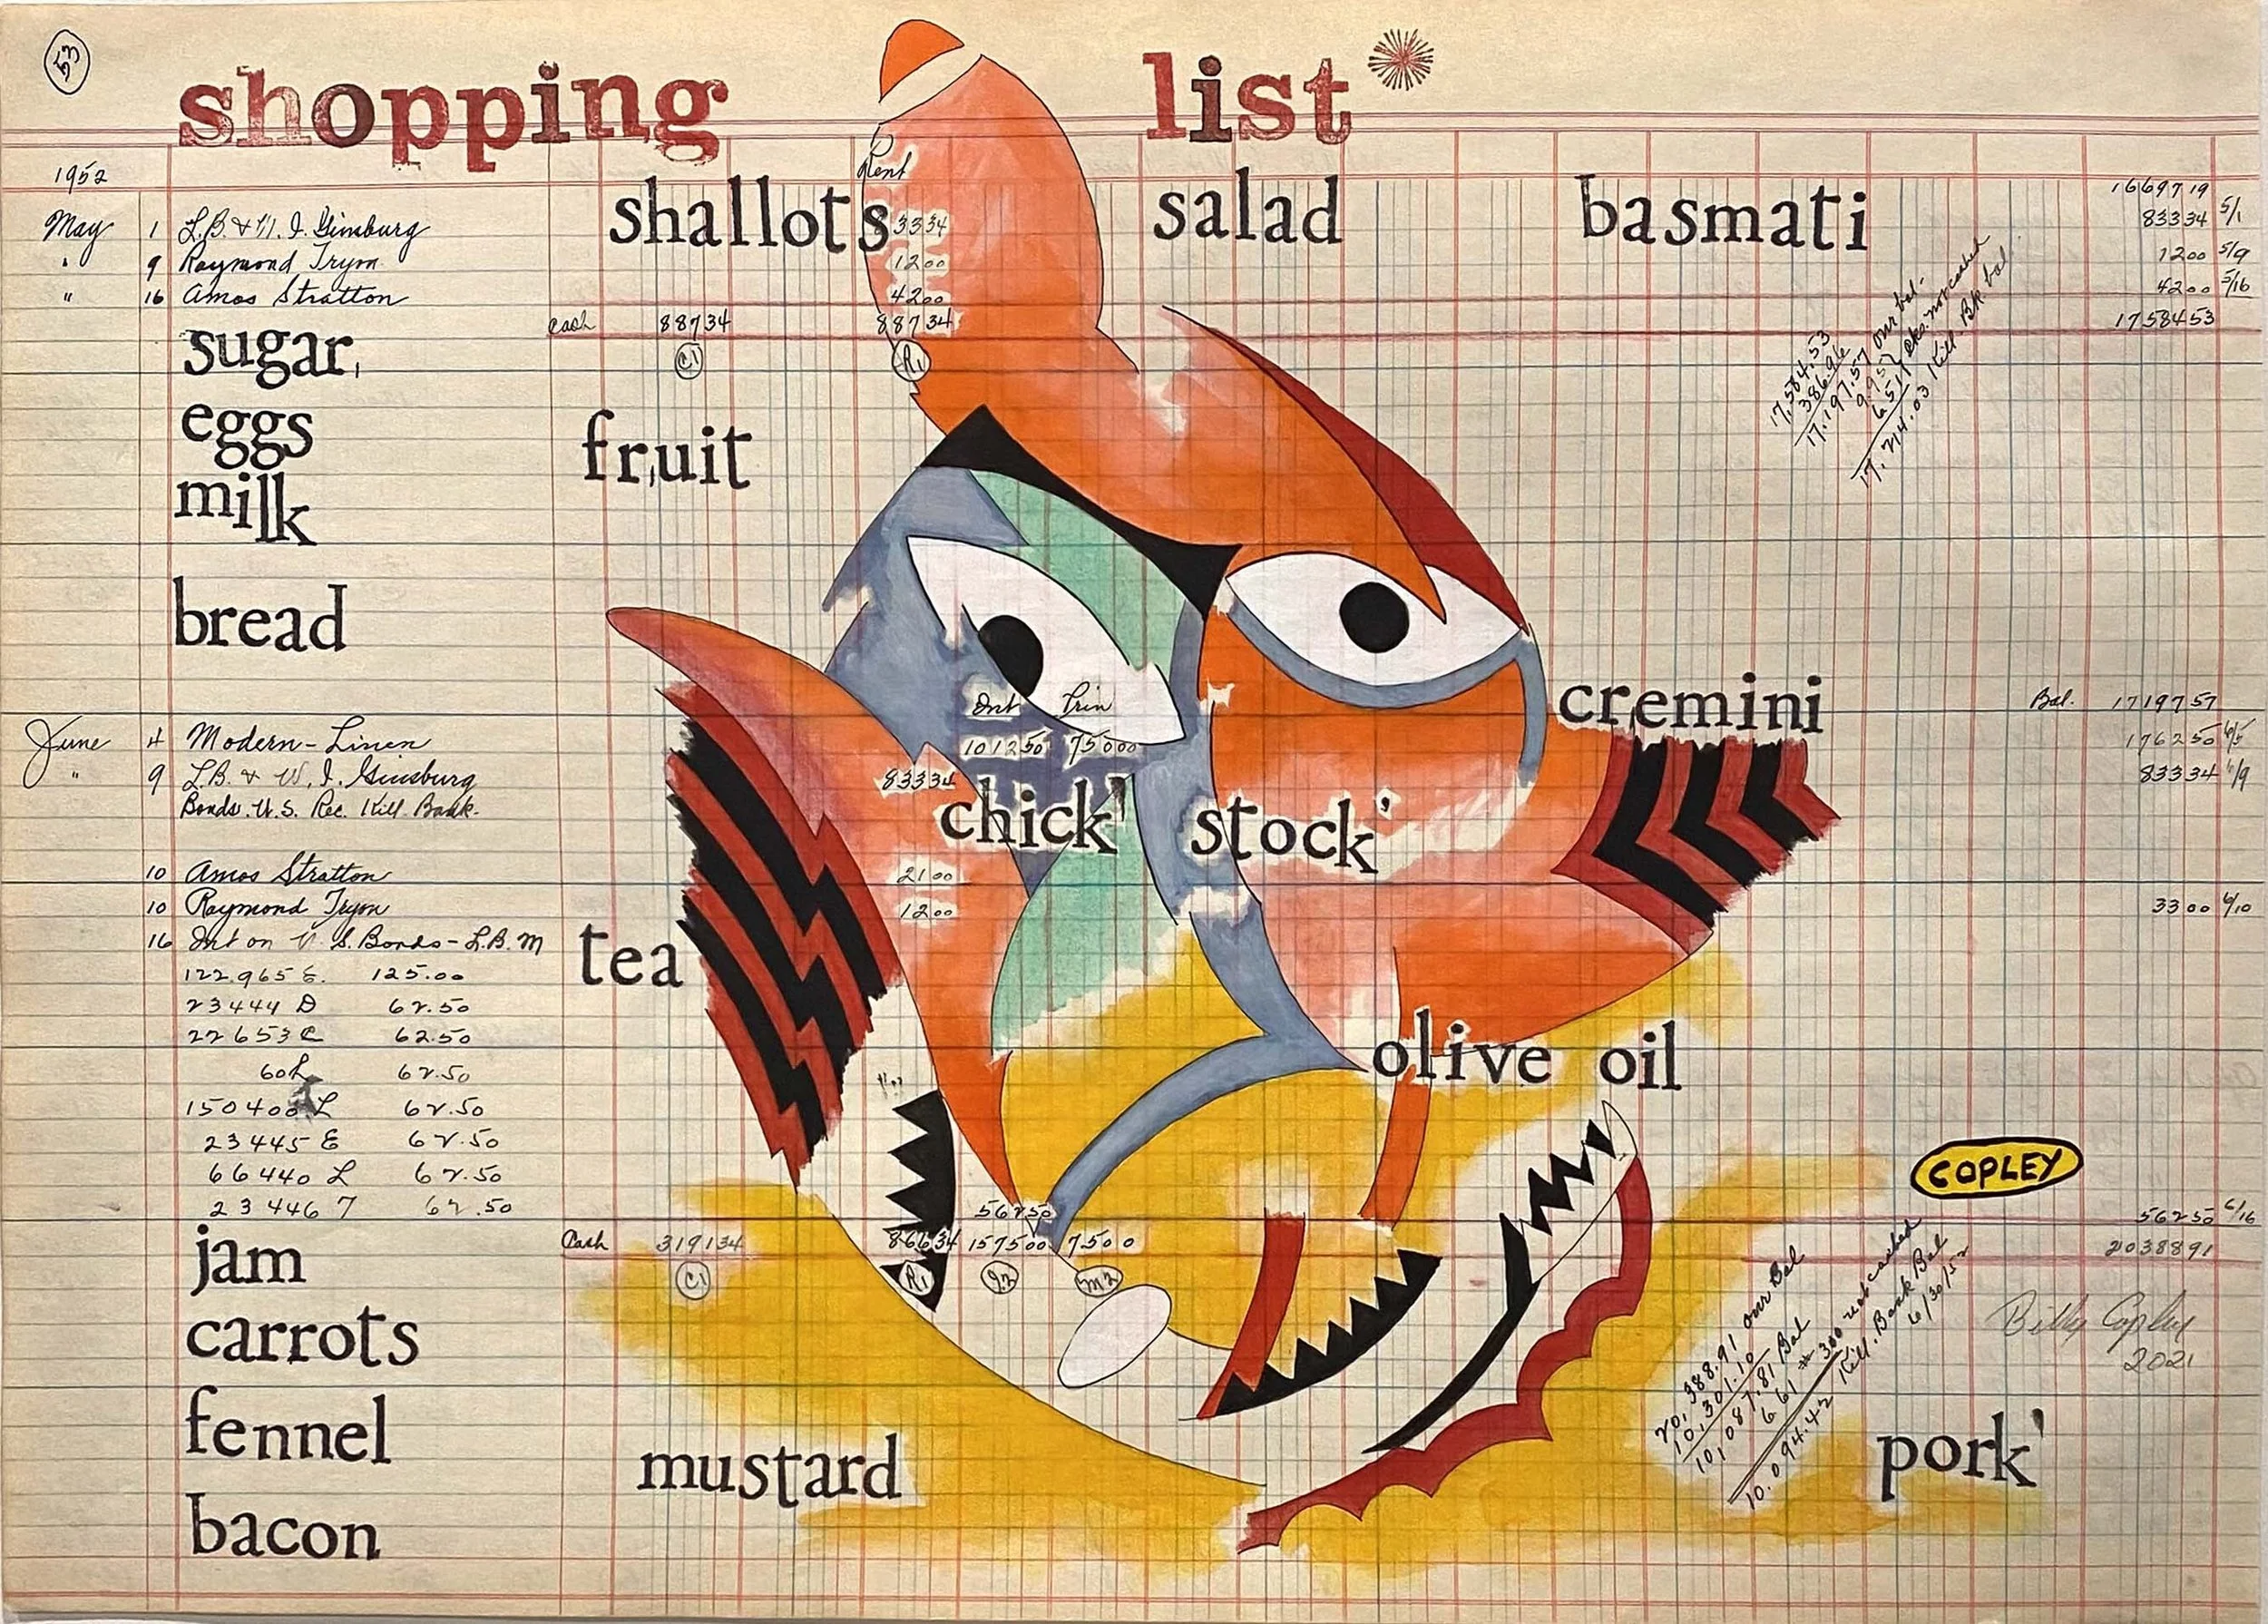 53
shopping list*
1952
Rent
shallots salad basmati
1669719
May 1 L.B. & W. I. Ginsburg 83334 83334 5/1
" 9 Raymond Tryon 1200 1200 5/9
" 16 Amos Stratton 4200 4200 5/16
Cash 88734 88734 1758453
C1 R1
sugar,
17,584.53
386.96
17,197.57 our bal.
9.95
6.51 cks. not cashed
17,214.03 Kill. Bk bal
eggs
fruit
milk
bread
cremini
Int Prin
Bal. 1719757
June 4 Modern-Linen 101250 75000 176250 6/5
" 9 L.B. & W. I. Ginsburg 83334 83334 6/9
Bonds. U.S. Rec. Kill Bank.
chick' stock'
10 Amos Stratton 2100
10 Raymond Tryon 1200 3300 6/10
16 Int on U.S. Bonds - L.B.M
tea
122.965 E. 125.00
23444 D 62.50
22653 C 62.50
olive oil
60L 62.50
150400 L 62.50
23445 E 62.50
66440 L 62.50
COPLEY
23446 7 62.50
56250 56250 6/16
Cash 319134 86634 157500 7500 2038891
C1 R1 I2 M2
jam
20,388.91 our Bal
10,301.10
10,087.81 Bal
6 61 # 300 not cashed
10.094.42 Kill. Bank Bal
6/30/52
Billy Copley
2021
carrots
fennel
mustard pork'
bacon